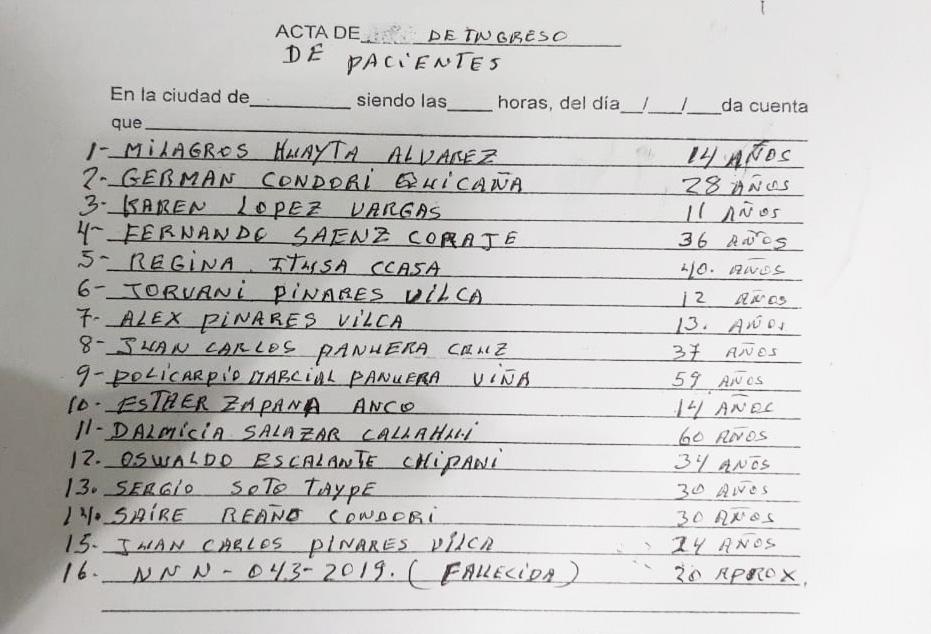 ACTA DE DE INGRESO
DE PACIENTES
En la ciudad de__________ siendo las_____ horas, del día__/___/___da cuenta
que
1- MILAGROS HUAYTA ALVAREZ 14 AÑOS
2- GERMAN CONDORI QUICAÑA 28 AÑOS
3- KAREN LOPEZ VARGAS 11 AÑOS
4- FERNANDO SAENZ 36 AÑOS
5- REGINA ITUSA CCASA 40. AÑOS
6- JORVANI PINARES VILCA 12 AÑOS
7- ALEX PINARES VILCA 13. AÑOS
8- JUAN CARLOS PANUERA CRUZ 37 AÑOS
9- POLICARPIO MARCIAL PANUERA VIÑA 59 AÑOS
10- ESTHER ZAPANA ANCO 14 AÑOS
11- DALMICIA SALAZAR CALLAHUI 60 AÑOS
12. OSWALDO ESCALANTE CHIPANI 34 AÑOS
13. SERGIO SOTO TAYPE 30 AÑOS
14. SAIRE REAÑO CONDORI 30 AÑOS
15- JUAN CARLOS PINARES VILCA AÑOS
16- NNN-043-2019. (FALLECIDA) 20 APROX.